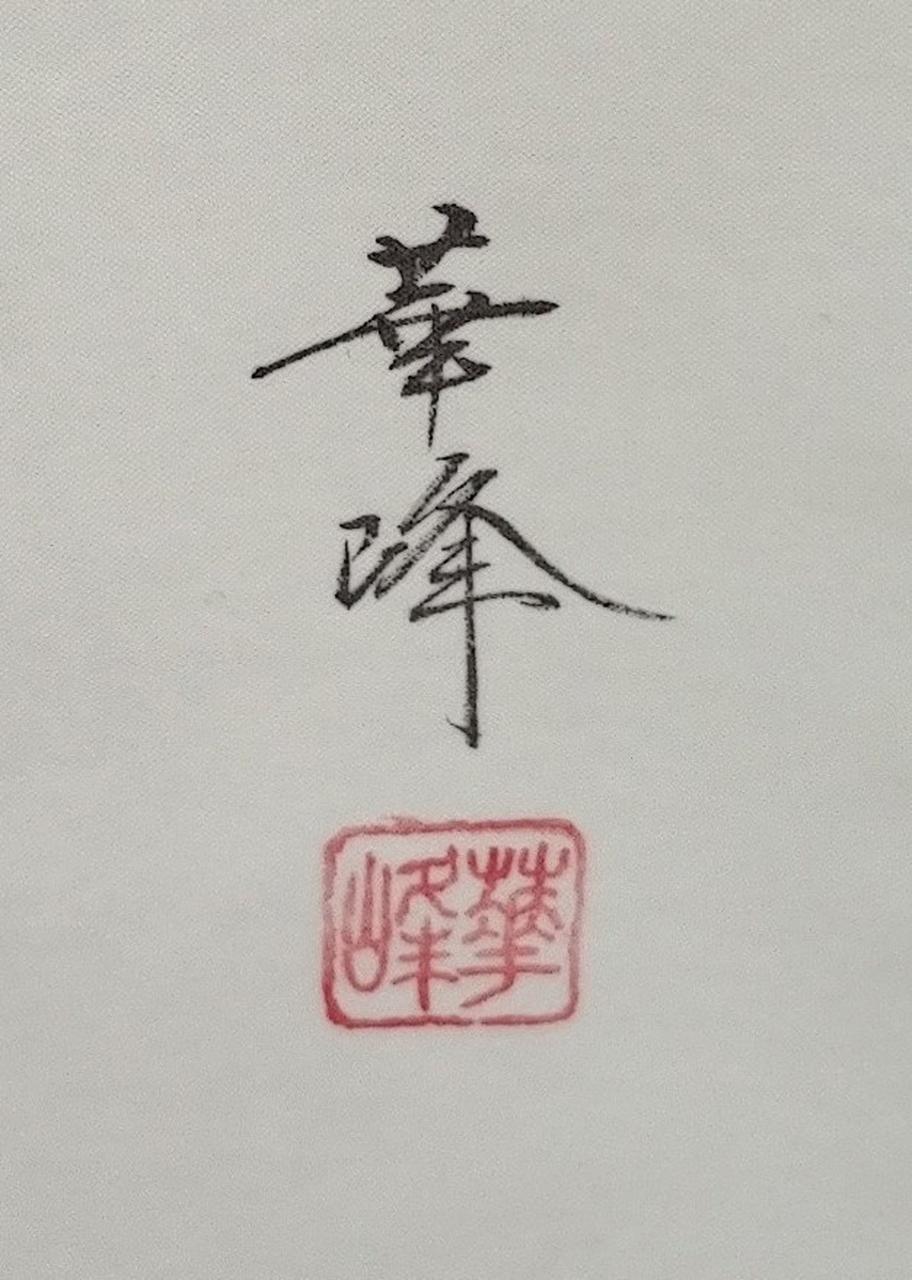 華
峰
華峰